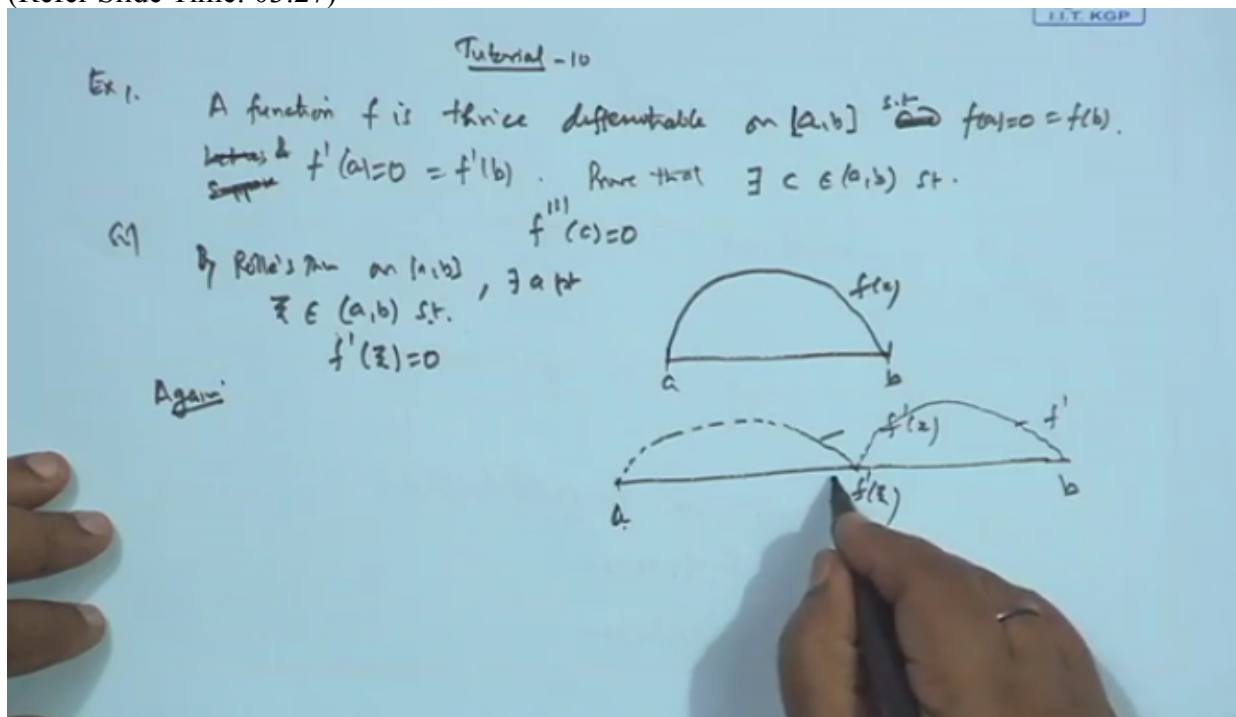 (Refer Slide Time: 03:27)
I.I.T. KGP
Tutorial - 10
Ex 1.
A function f is thrice differentiable on [a,b] s.t f(a)=0 = f(b).
& f'(a)=0 = f'(b). Prove that ∃ c ∈ (a,b) st.
f'''(c)=0
By Rolle's Thm on [a,b], ∃ a pt
ξ ∈ (a,b) s.t.
f'(ξ)=0
Again
f(x)
a b
f'(x) f'
a f'(ξ) b